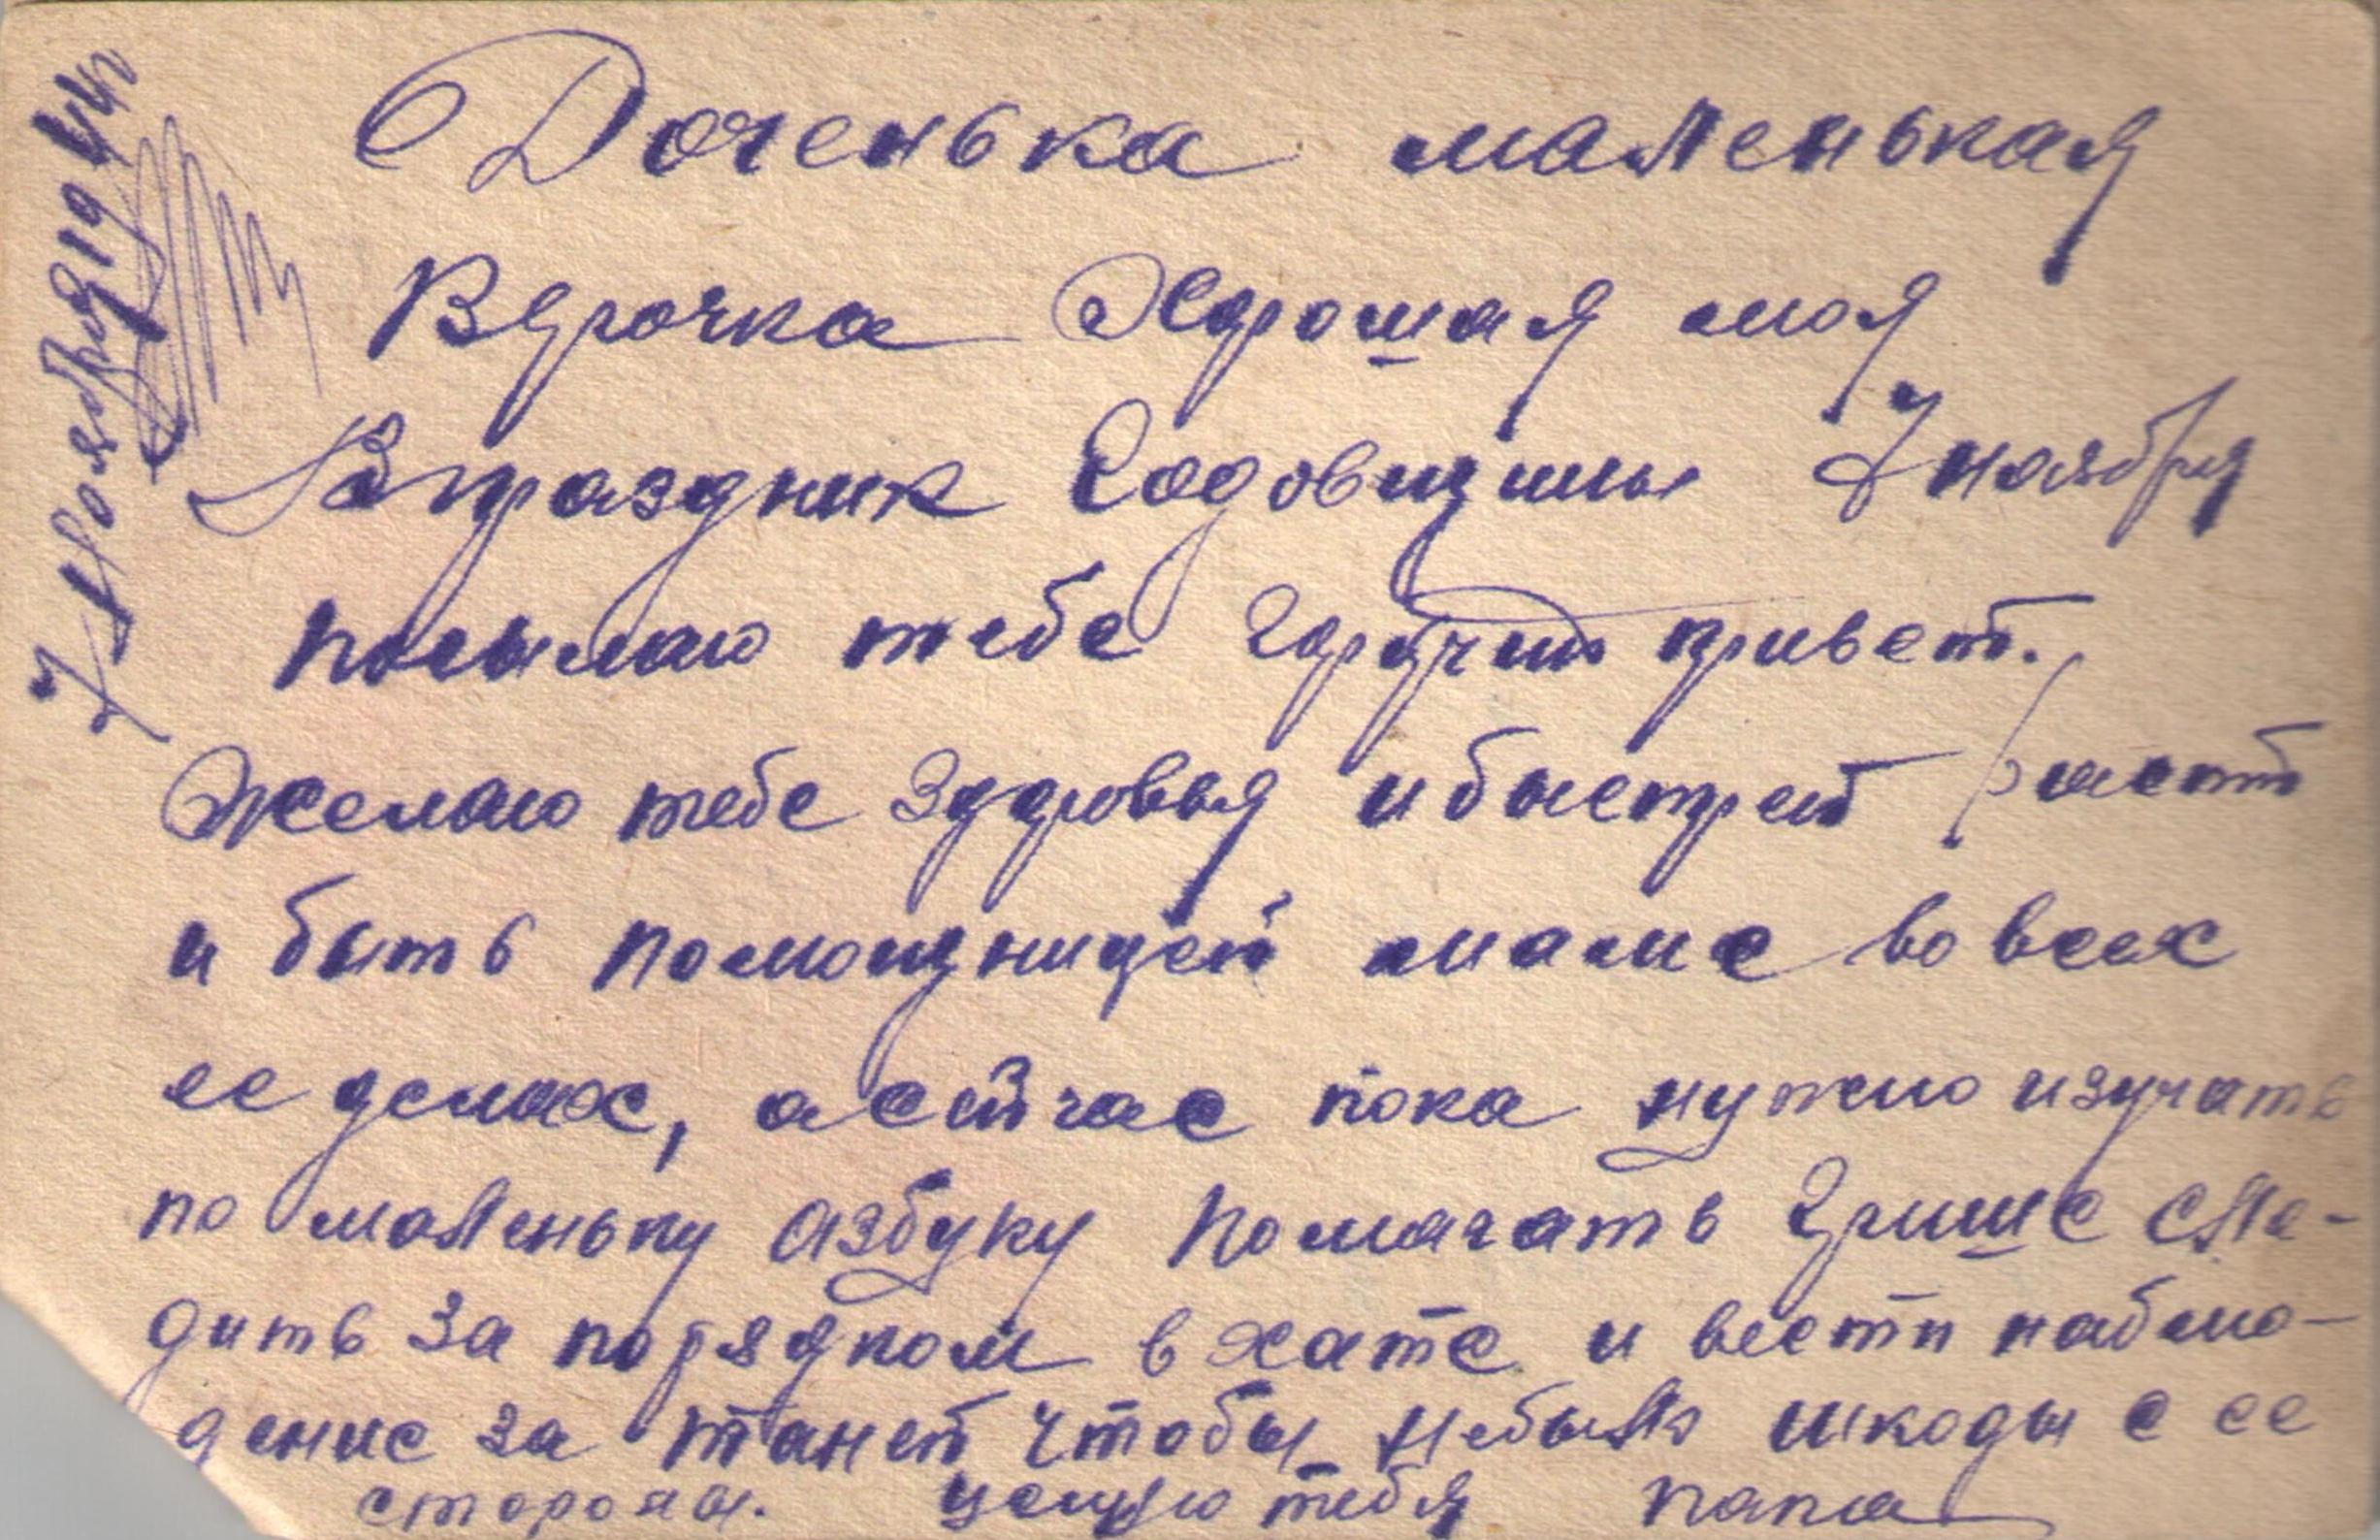 7 Ноября 1944г
Доченька маленькая
Вярочка Хорошая моя
В праздник Годовщины 7 ноября
посылаю тебе горячий привет.
Желаю тебе здоровья и быстрей расти
и быть помощницей маме во всех
ее делах, а сейчас пока нужно изучать
по маленьку азбуку помагать Грише сле-
дить за порядком в хате и вести наблю-
дение за Таней чтобы небыло шкоды с ее
стороны. целую тебя папа